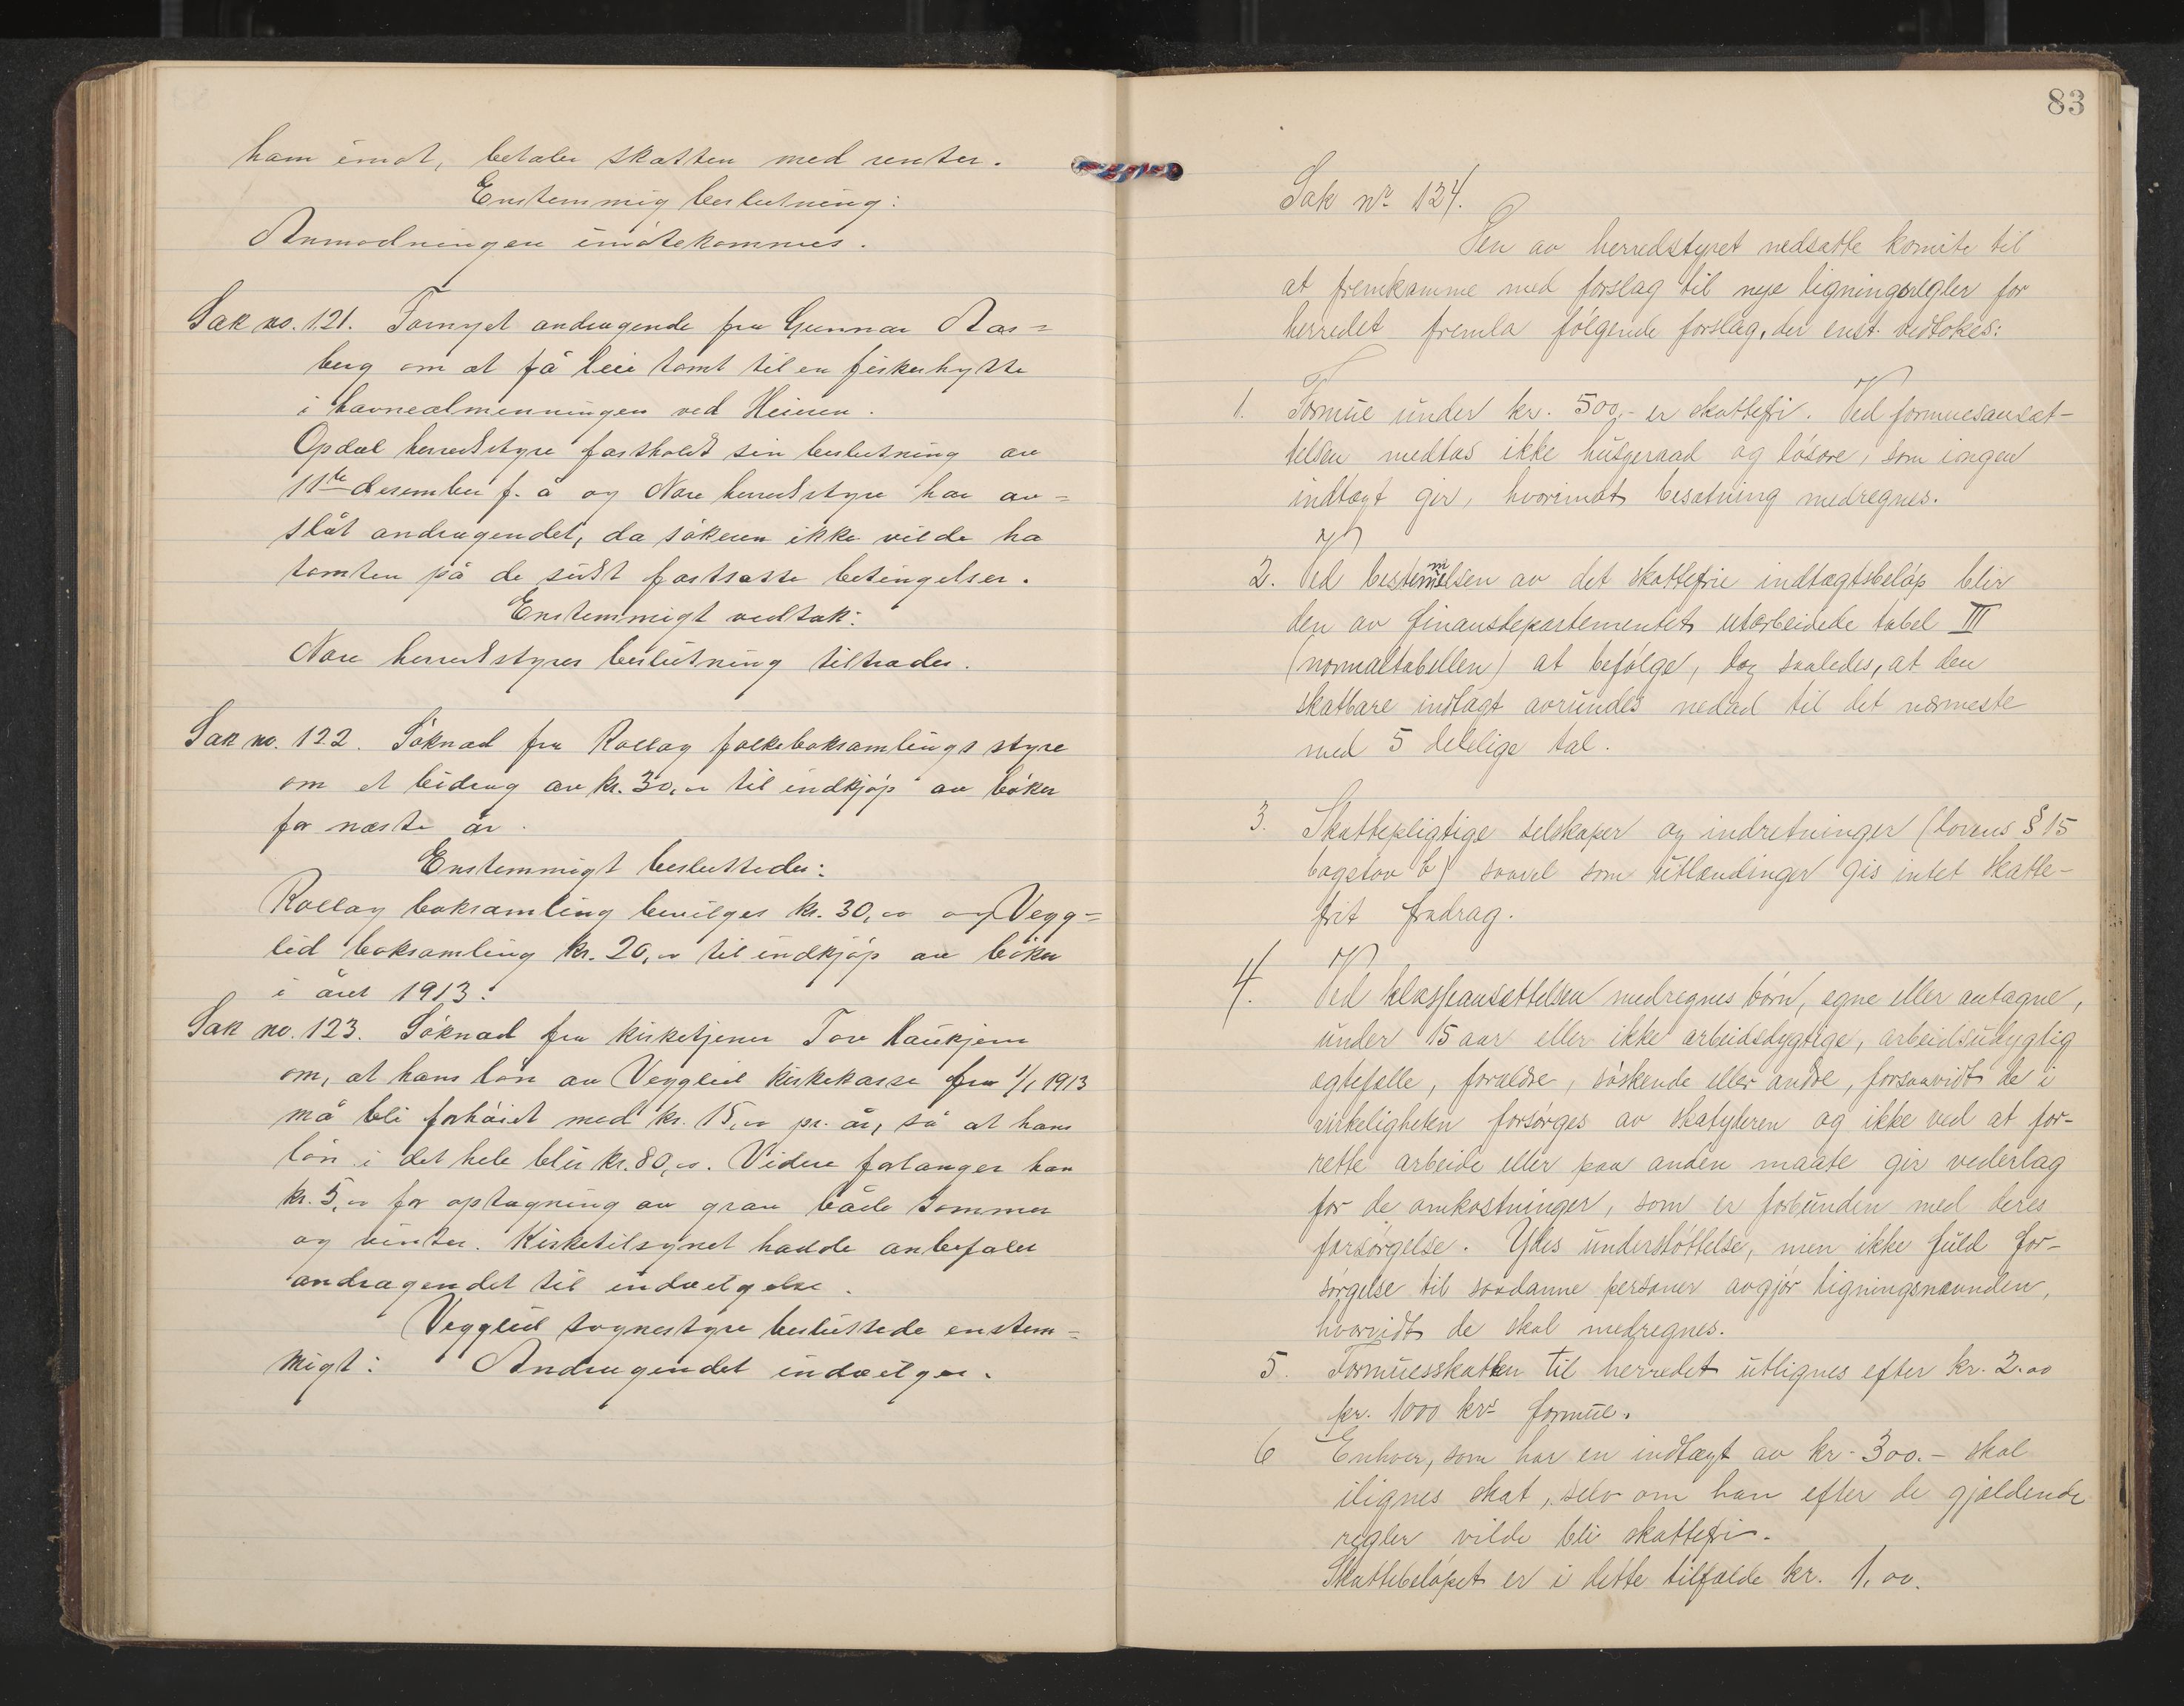 ham imot, betaler skatten med renter.
Enstemmig beslutning:
Anmodningen imøtekommes.
Sak no. 121. Fornyet andragende fra Gunnar Aas=
berg om at få leie tomt til en fiskerhytte
i havnealmenningen ved Heinen.
Opdal herredstyre fastholdt sin beslutning av
11te desember f. å og Nore herredstyre har av=
slåt andragendet, da søkeren ikke vilde ha
tomten på de sidst fastsatte betingelser.
Enstemmigt vedtak:
Nore herredstyres beslutning tiltrædes.
Sak no. 122. Søknad fra Rollag folkeboksamlings styre
om et bidrag av kr. 30,00 til indkjøp av bøker
for næste år.
Enstemmigt besluttedes:
Rollag boksamling bevilges kr. 30,00 og Vegg=
lid boksamling kr. 20,00 til indkjøp av bøker
i året 1913.
Sak no. 123. Søknad fra kirketjener Tore Haukjem
om, at hans løn av Vegglid kirkekasse fra 1/1 1913
må bli forhøiet med kr. 15,00 pr. år, så at hans
løn i det hele blir kr. 80,00. Videre forlanger han
kr. 5,00 for optagning av grav både sommer
og vinter. Kirketilsynet hadde anbefalet
andragendet til indvilgelse.
Vegglid sognestyre besluttede enstem=
migt: Andragendet indvilges.
83
Sak nr. 124.
Den av herredstyret nedsatte komite til
at fremkomme med forslag til nye ligningsregler for
herredet fremla følgende forslag, der enst. vedtokes:
1. Formue under kr. 500,- er skattefri. Ved formuesansæt-
telsen medtas ikke husgeraad og løsøre, som ingen
indtægt gir, hvorimot besætning medregnes.
2. Ved bestemmelsen av det skattefrie indtægtsbeløp blir
den av finansdepartementet utarbeidede tabel III
(normaltabellen) at befølge, dog saaledes, at den
skatbare indtægt avrundes nedad til det nærmeste
med 5 delelige tal.
3. Skattepligtige selskaper og indretninger (lovens § 15
bogstav b) saavel som utlændinger gis intet skatte-
frit fradrag.
4. Ved klasseansættelsen medregnes børn, egne eller antagne,
under 15 aar eller ikke arbeidsdygtige, arbeidsudygtig
egtefælle, forældre, søskende eller andre, forsaavidt de i
virkeligheten forsørges av skatyderen og ikke ved at for-
rette arbeide eller paa anden maate gir vederlag
for de omkostninger, som er forbunden med deres
forsørgelse. Ydes understøttelse, men ikke fuld for-
sørgelse til saadanne personer avgjør ligningsnævnden,
hvorvidt de skal medregnes.
5. Formuesskatten til herredet utlignes efter kr. 2.00
pr. 1000 krs formue.
6 Enhver, som har en indtægt av kr. 300.- skal
ilignes skat, selv om han efter de gjældende
regler vilde bli skattefri.
Skattebeløpet er i dette tilfælde kr. 1,00.